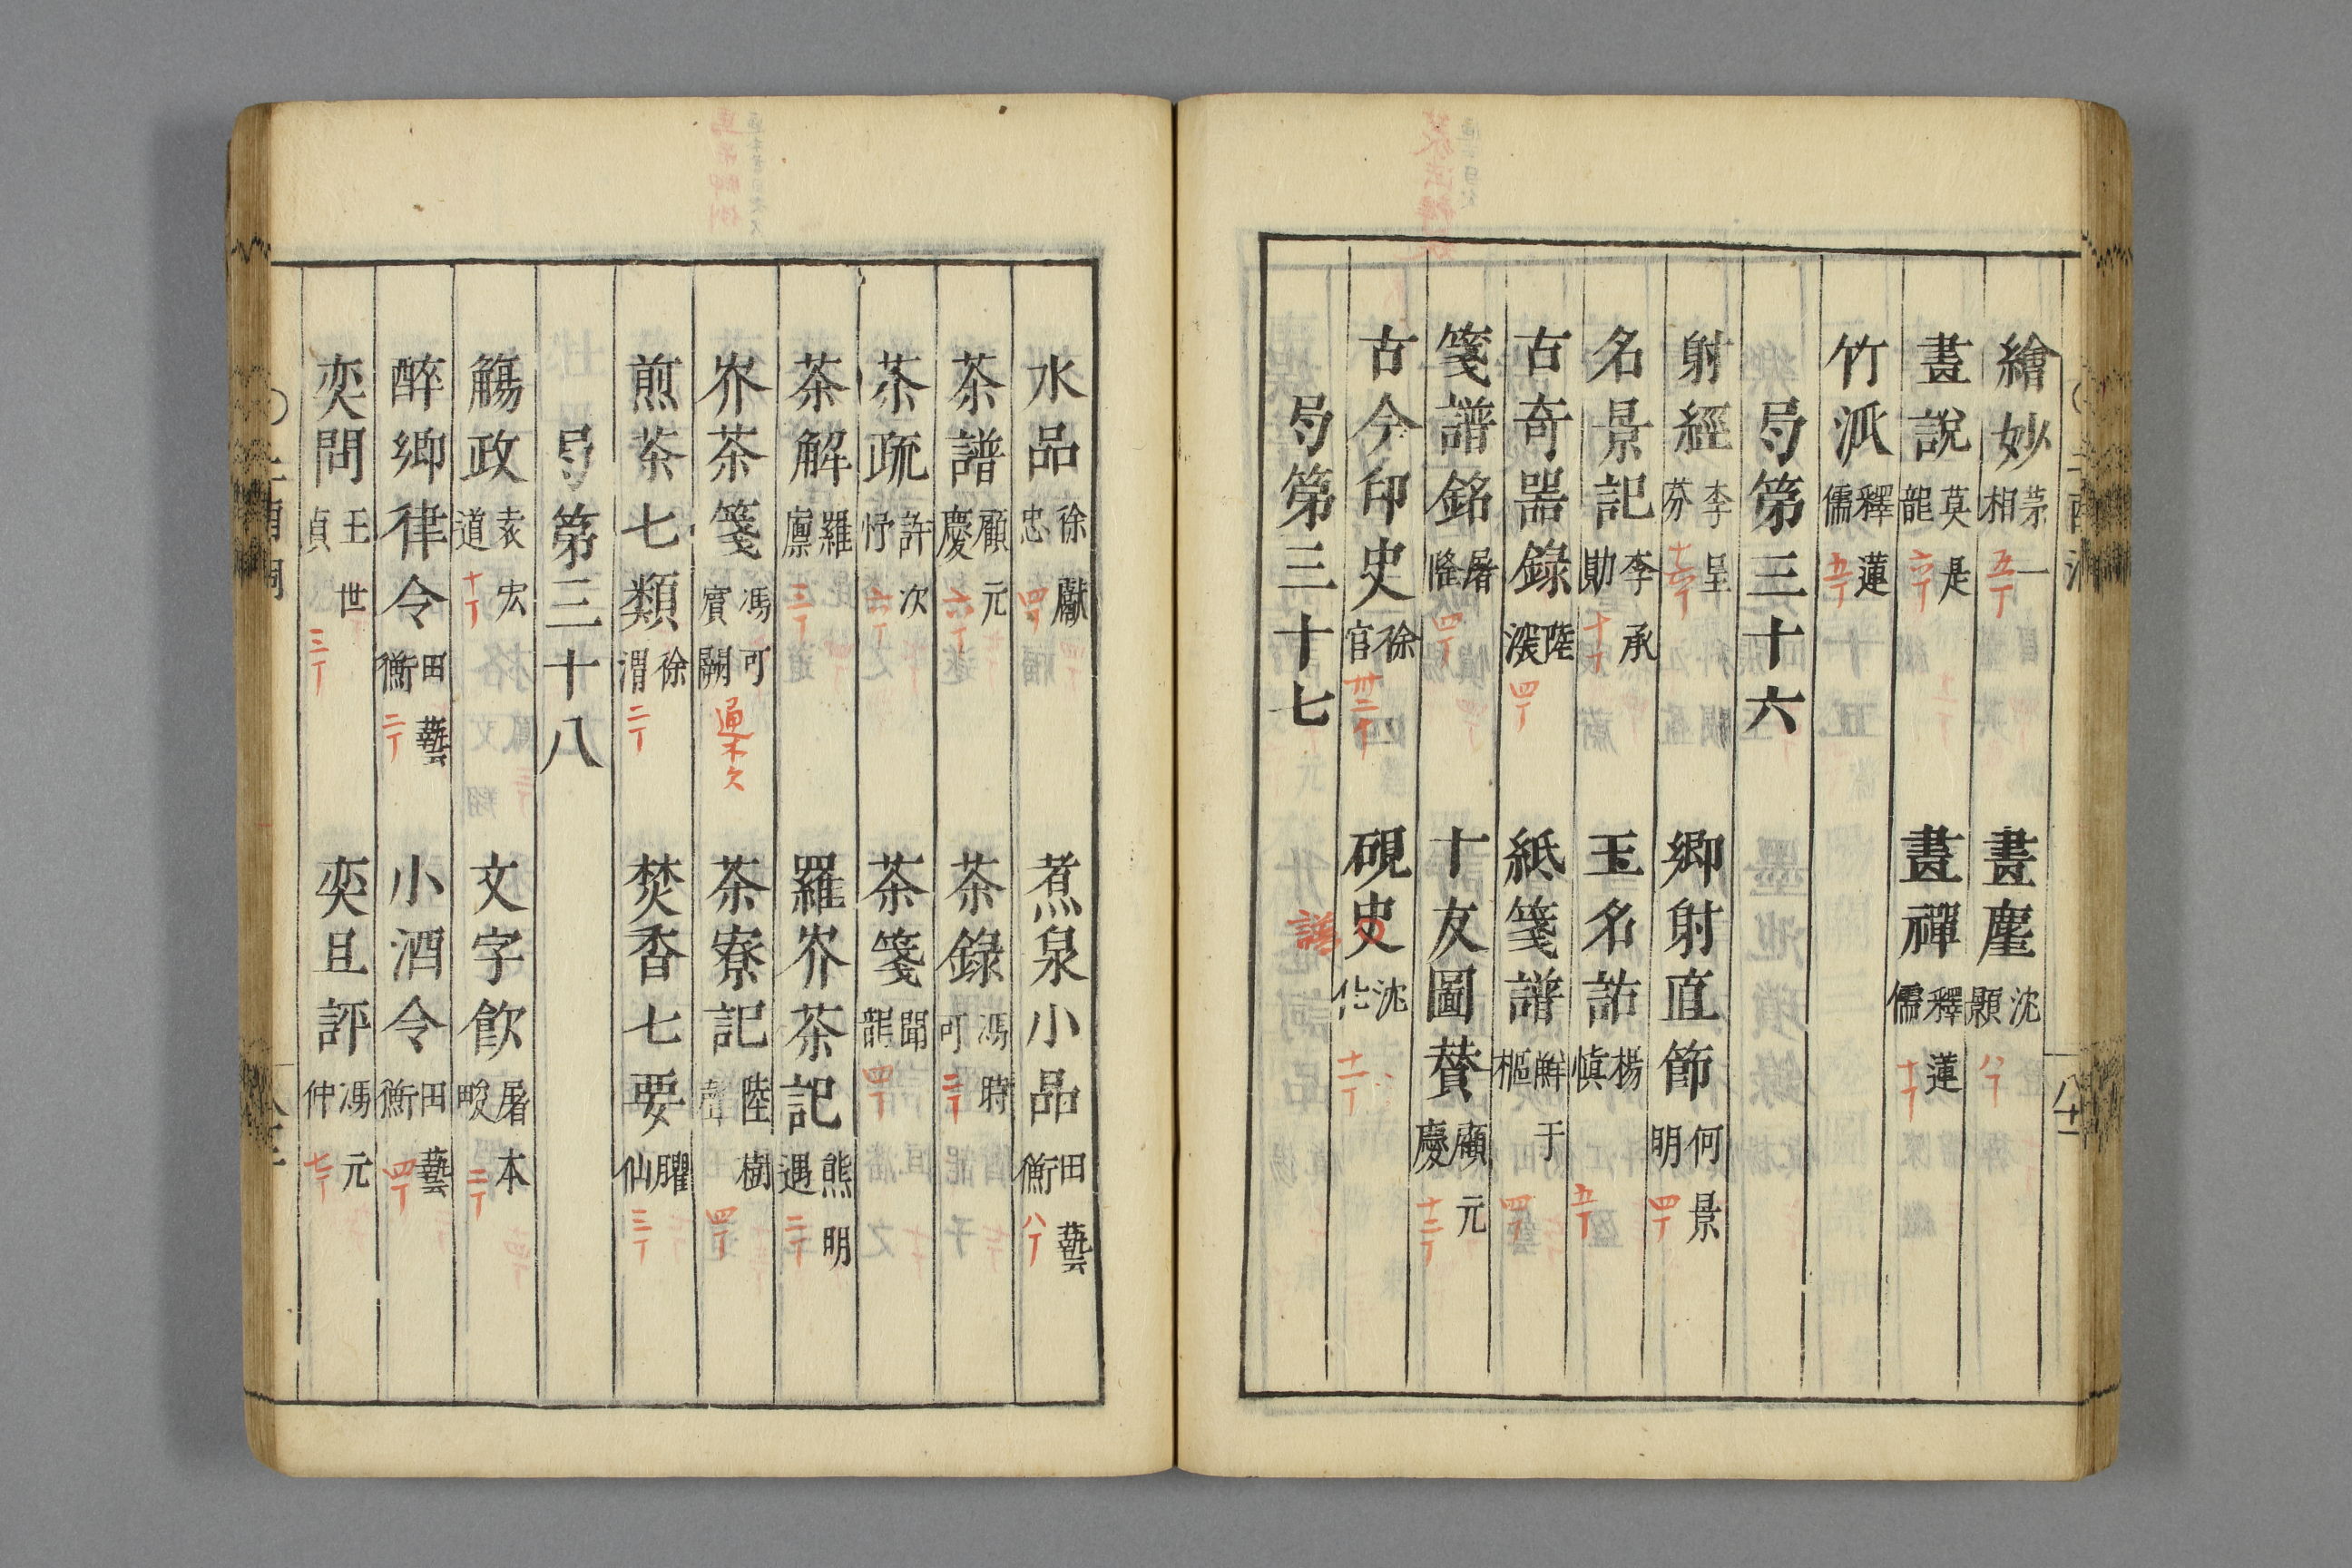 繪妙 茅一相 五丁 畫麈 沈顥 八丁
畫說 莫是龍 六丁 畫禪 釋蓮儒 十丁
竹派 釋蓮儒 五丁
弓第三十六
射經 李呈芬 鄉射直節 何景明 四丁
名景記 李承勛 十丁 玉名詁 楊愼 五丁
古奇器錄 陸深 四丁 紙箋譜 鮮于樞 四丁
箋譜銘 屠隆 四丁 十友圖贊 顧元慶 十二丁
古今印史 徐官 卅二丁 硯史 沈仕 十二丁
譜
弓第三十七
水品 徐獻忠 四丁 煮泉小品 田藝衡 八丁
茶譜 顧元慶 六丁 茶錄 馮時可 二丁
茶疏 許次忬 六丁 茶箋 聞龍 四丁
茶解 羅廩 三丁 羅岕茶記 熊明遇 二丁
岕茶箋 馮可賓 闕 通本欠 茶寮記 陸樹聲 四丁
煎茶七類 徐渭 二丁 焚香七要 臞仙 三丁
弓第三十八
觴政 袁宏道 十丁 文字飲 屠本畯 二丁
醉鄉律令 田藝衡 二丁 小酒令 田藝衡 四丁
奕問 王世貞 三丁 奕旦評 馮元仲 七丁